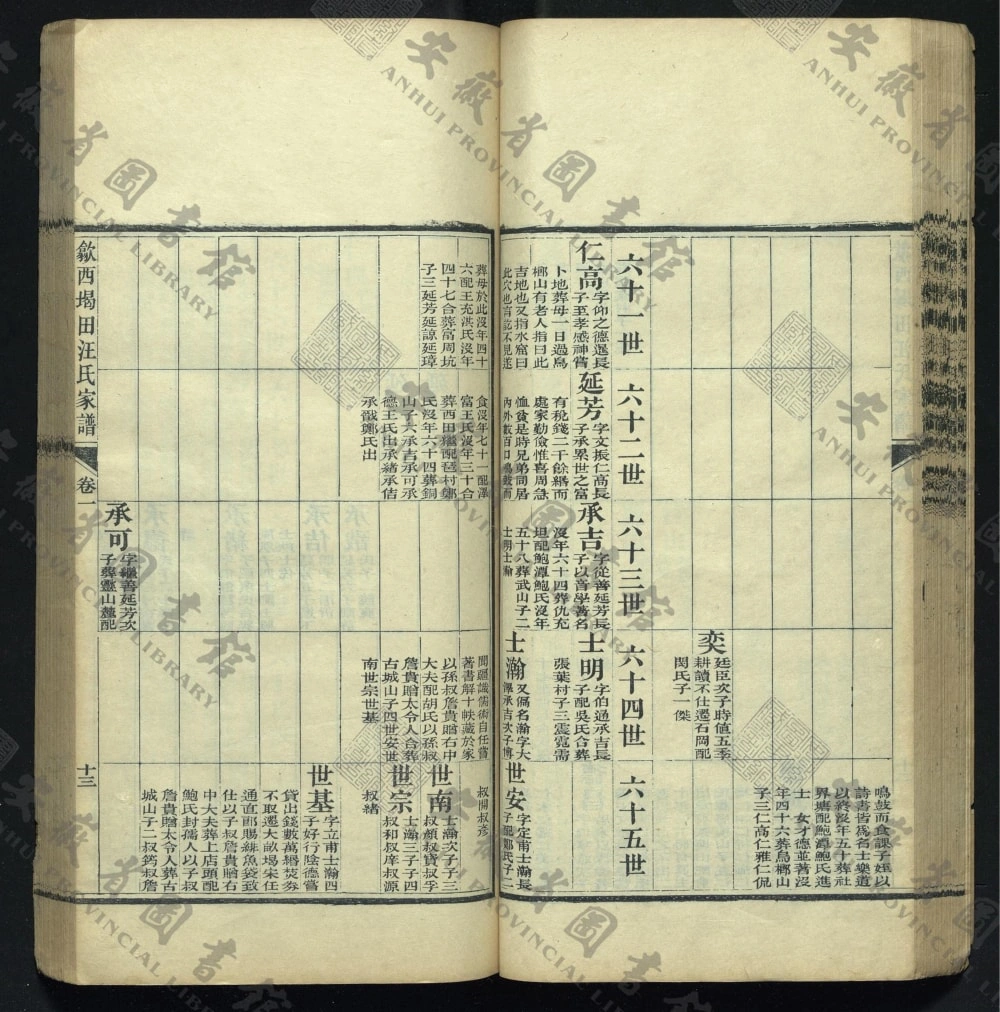 鳴鼓而食課子姪以
詩書皆爲名士樂道
以終沒年五十葬社
界塘配鮑潭鮑氏進
士 女才德並著沒
年四十六葬烏槨山
子三仁高仁雅仁侃
奕
廷臣次子時値五季
耕讀不仕遷石岡配
閔氏子一傑
六十一世
六十二世
六十三世
六十四世
六十五世
仁高
字仰之德暹長
子至孝感神嘗
卜地葬母一日過烏
槨山有老人指曰此
吉地也又指水窟曰
此穴也言訖不見遂
葬母於此沒年四十
六配王充洪氏沒年
四十七合葬富周坑
子三延芳延諒延璋
延芳
字文振仁高長
子承累世之富
有稅錢二千餘緡而
處家勤儉惟喜周急
恤貧是時兄弟同居
內外數百口鳴鼓而
食沒年七十一配潭
富王氏沒年三十合
葬西田繼配琶村鄭
氏沒年六十四葬銅
山子六承吉承可承
德王氏出承緒承佶
承戩鄭氏出
承吉
字從善延芳長
子以苦學著名
沒年六十四葬仇充
坦配鮑潭鮑氏沒年
五十八葬武山子二
士明士瀚
承可
字繼善延芳次
子葬靈山麓配
士明
字伯通承吉長
子配吳氏合葬
張葉村子三震霓需
士瀚
又僞名瀚字大
淵承吉次子博
聞疆識儒術自任嘗
著書解十帙藏於家
以孫叔詹貴贈右中
大夫配胡氏以孫叔
詹貴贈太令人合葬
古城山子四世安世
南世宗世基
世安
字定甫士瀚長
子配鄭氏子二
叔開叔彥
世南
士瀚次子子三
叔顏叔賁叔孚
世宗
士瀚三子子四
叔和叔庠叔源
叔緒
世基
字立甫士瀚四
子好行陰德嘗
貸出錢數萬緡焚券
不取遷大畝塲宋任
通直郎賜緋魚袋致
仕以子叔詹貴贈右
中大夫葬上店頭配
鮑氏封孺人以子叔
詹貴贈太令人葬古
城山子二叔筠叔詹
歙西堨田汪氏家譜
卷一
十三
安徽省圖書館
ANHUI PROVINCIAL LIBRARY